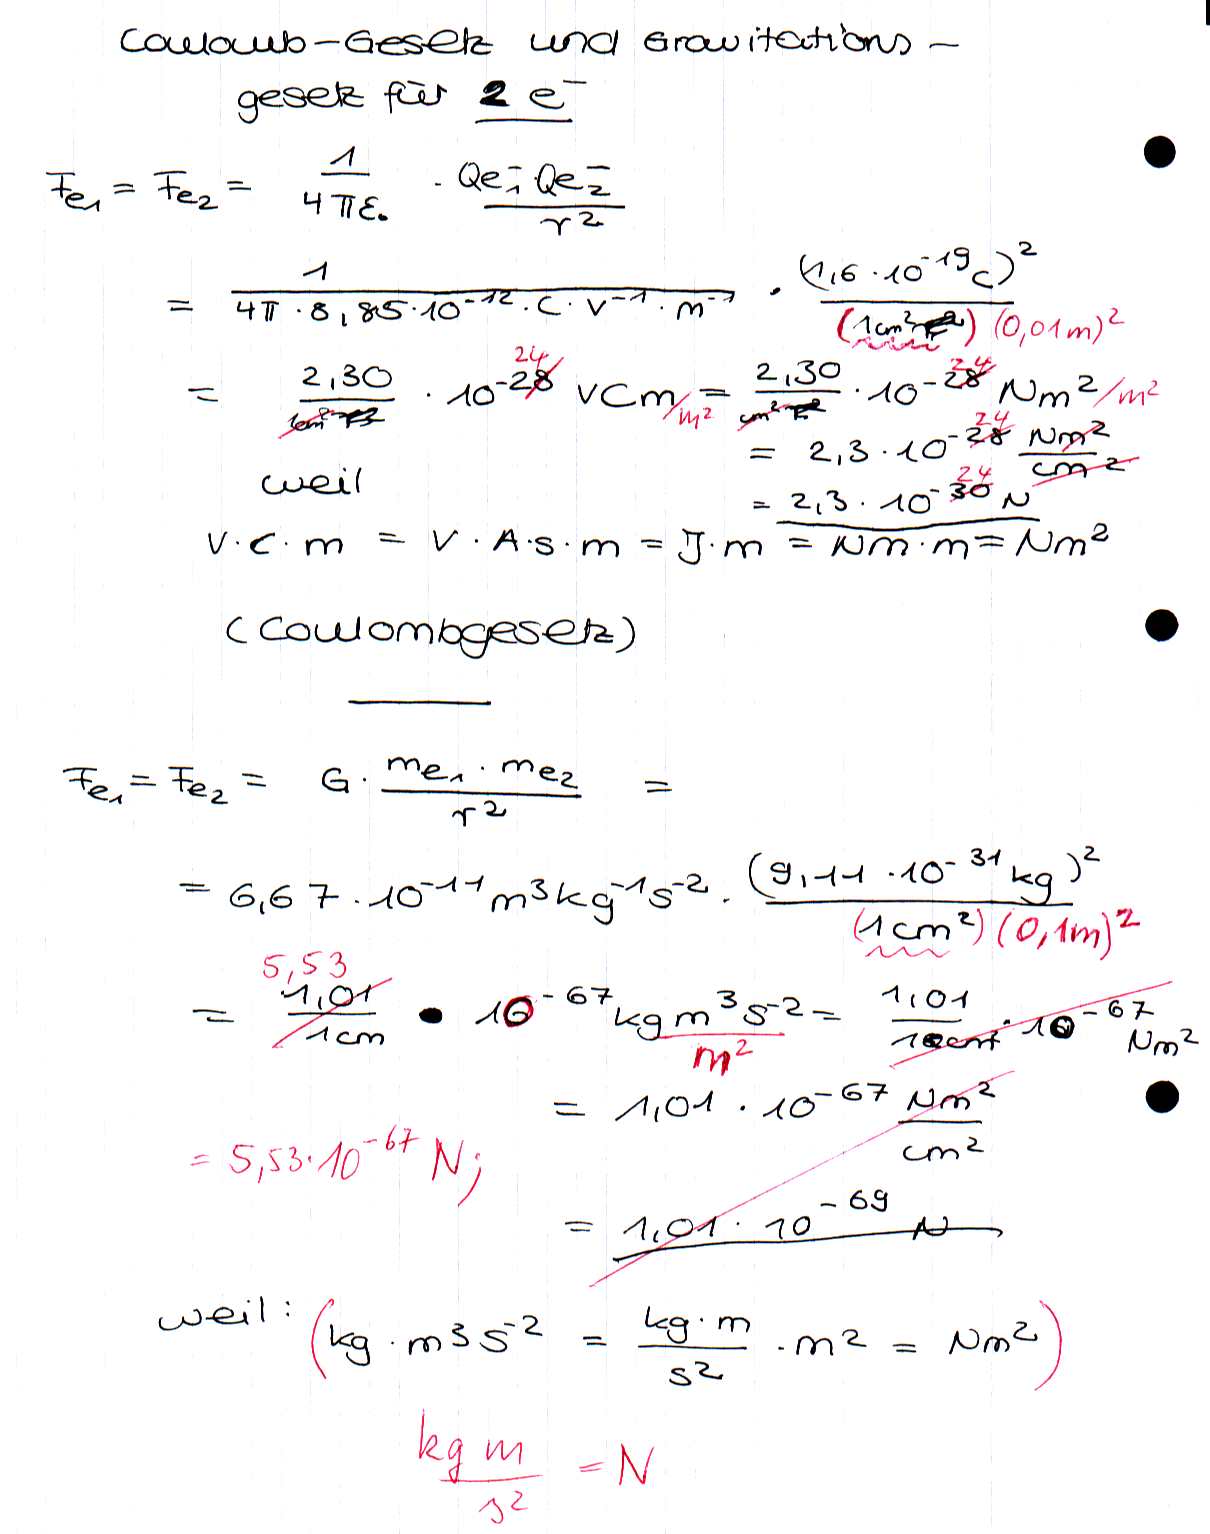 Coulomb-Gesetz und Gravitations-
gesetz für 2 e⁻
Fe₁ = Fe₂ = 1/(4πε₀) · (Qe₁⁻ · Qe₂⁻)/r²
= 1/(4π · 8,85 · 10⁻¹² · C · V⁻¹ · m⁻¹) · (1,6 · 10⁻¹⁹ C)²/((1cm²) (0,01m)²)
= 2,30/cm² · 10⁻²⁸ 24 VCm/m² = 2,30/cm² · 10⁻²⁸ 24 Nm²/m²
= 2,3 · 10⁻²⁸ 24 Nm²/cm²
weil
= 2,3 · 10⁻³⁰ 24 N
V · C · m = V · A · s · m = J · m = Nm · m = Nm²
(Coulombgesetz)
Fe₁ = Fe₂ = G · (me₁ · me₂)/r² =
= 6,67 · 10⁻¹¹ m³kg⁻¹s⁻² · (9,11 · 10⁻³¹ kg)²/((1cm²) (0,1m)²)
5,53
= 1,01/1cm · 10⁻⁶⁷ kgm³s⁻²/m² = 1,01/1cm² · 10⁻⁶⁷ Nm²
= 1,01 · 10⁻⁶⁷ Nm²/cm²
= 5,53·10⁻⁶⁷ N;
= 1,01 · 10⁻⁶⁹ N
weil: (kg · m³s⁻² = kg · m/s² · m² = Nm²)
kg m/s² = N